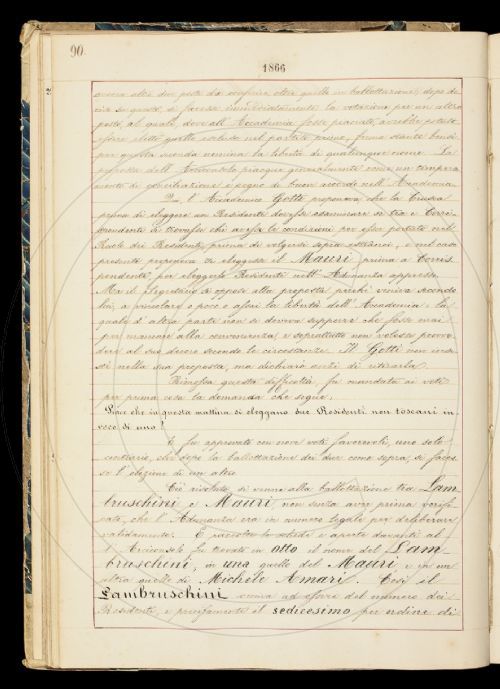 90.
1866
ancora altri due posti da conferire, oltre quello in ballottazione; dopo de
ciso su questo, si facesse immediatamente la votazione per un altro
posto, al quale, dove all' Accademia fosse piaciuto, avrebbe potuto
essere eletto quello escluso nel partito primo, ferma stante bensì
per questa seconda nomina la libertà di qualunque nome. La
proposta dell' Arciconsolo piacque generalmente come un tempera
mento di conciliazione e segno di buon accordo nell' Accademia.
Qui l' Accademico Gotti proponeva che la Crusca
prima di eleggere un Residente dovesse esaminare se tra i Corri
spondenti si trovasse chi avesse le condizioni per esser portato nel
Ruolo dei Residenti, prima di volgersi sopra estranei, e nel caso
presente proponeva si eleggesse il Mauri prima a Corris
pondente per eleggerlo Residente nell' Adunanza appresso.
Ma il Segretario si oppose alla proposta perchè veniva secondo
lui, a vincolare o poco o assai la libertà dell' Accademia: la
quale d' altra parte non si doveva supporre che fosse mai
per mancare alla convenienza, e soprattutto non volesse provve
dere al suo decoro secondo le circostanze. Il Gotti non insi
stè nella sua proposta, ma dichiarò anzi di ritirarla.
Rimossa questa difficoltà, fu mandata ai voti
per prima cosa la domanda che segue:
Piace che in questa mattina si eleggano due Residenti non toscani in
vece di uno?
E fu approvata con nove voti favorevoli, uno solo
contrario, che dopo la ballottazione dei due come sopra, si faces
se l' elezione di un altro.
Ciò risoluto, si venne alla ballottazione tra Lam
bruschini e Mauri, non senza aver prima verifi
cato, che l' Adunanza era in numero legale per deliberare
validamente. E raccolte le schede e aperte davanti al
l' Arciconsolo fu trovato in otto il nome del Lam-
bruschini, in una quello del Mauri, e in un
altra quello di Michele Amari. Così il
Lambruschini veniva ad essere del numero dei
Residenti, e precisamente il sedicesimo per ordine di